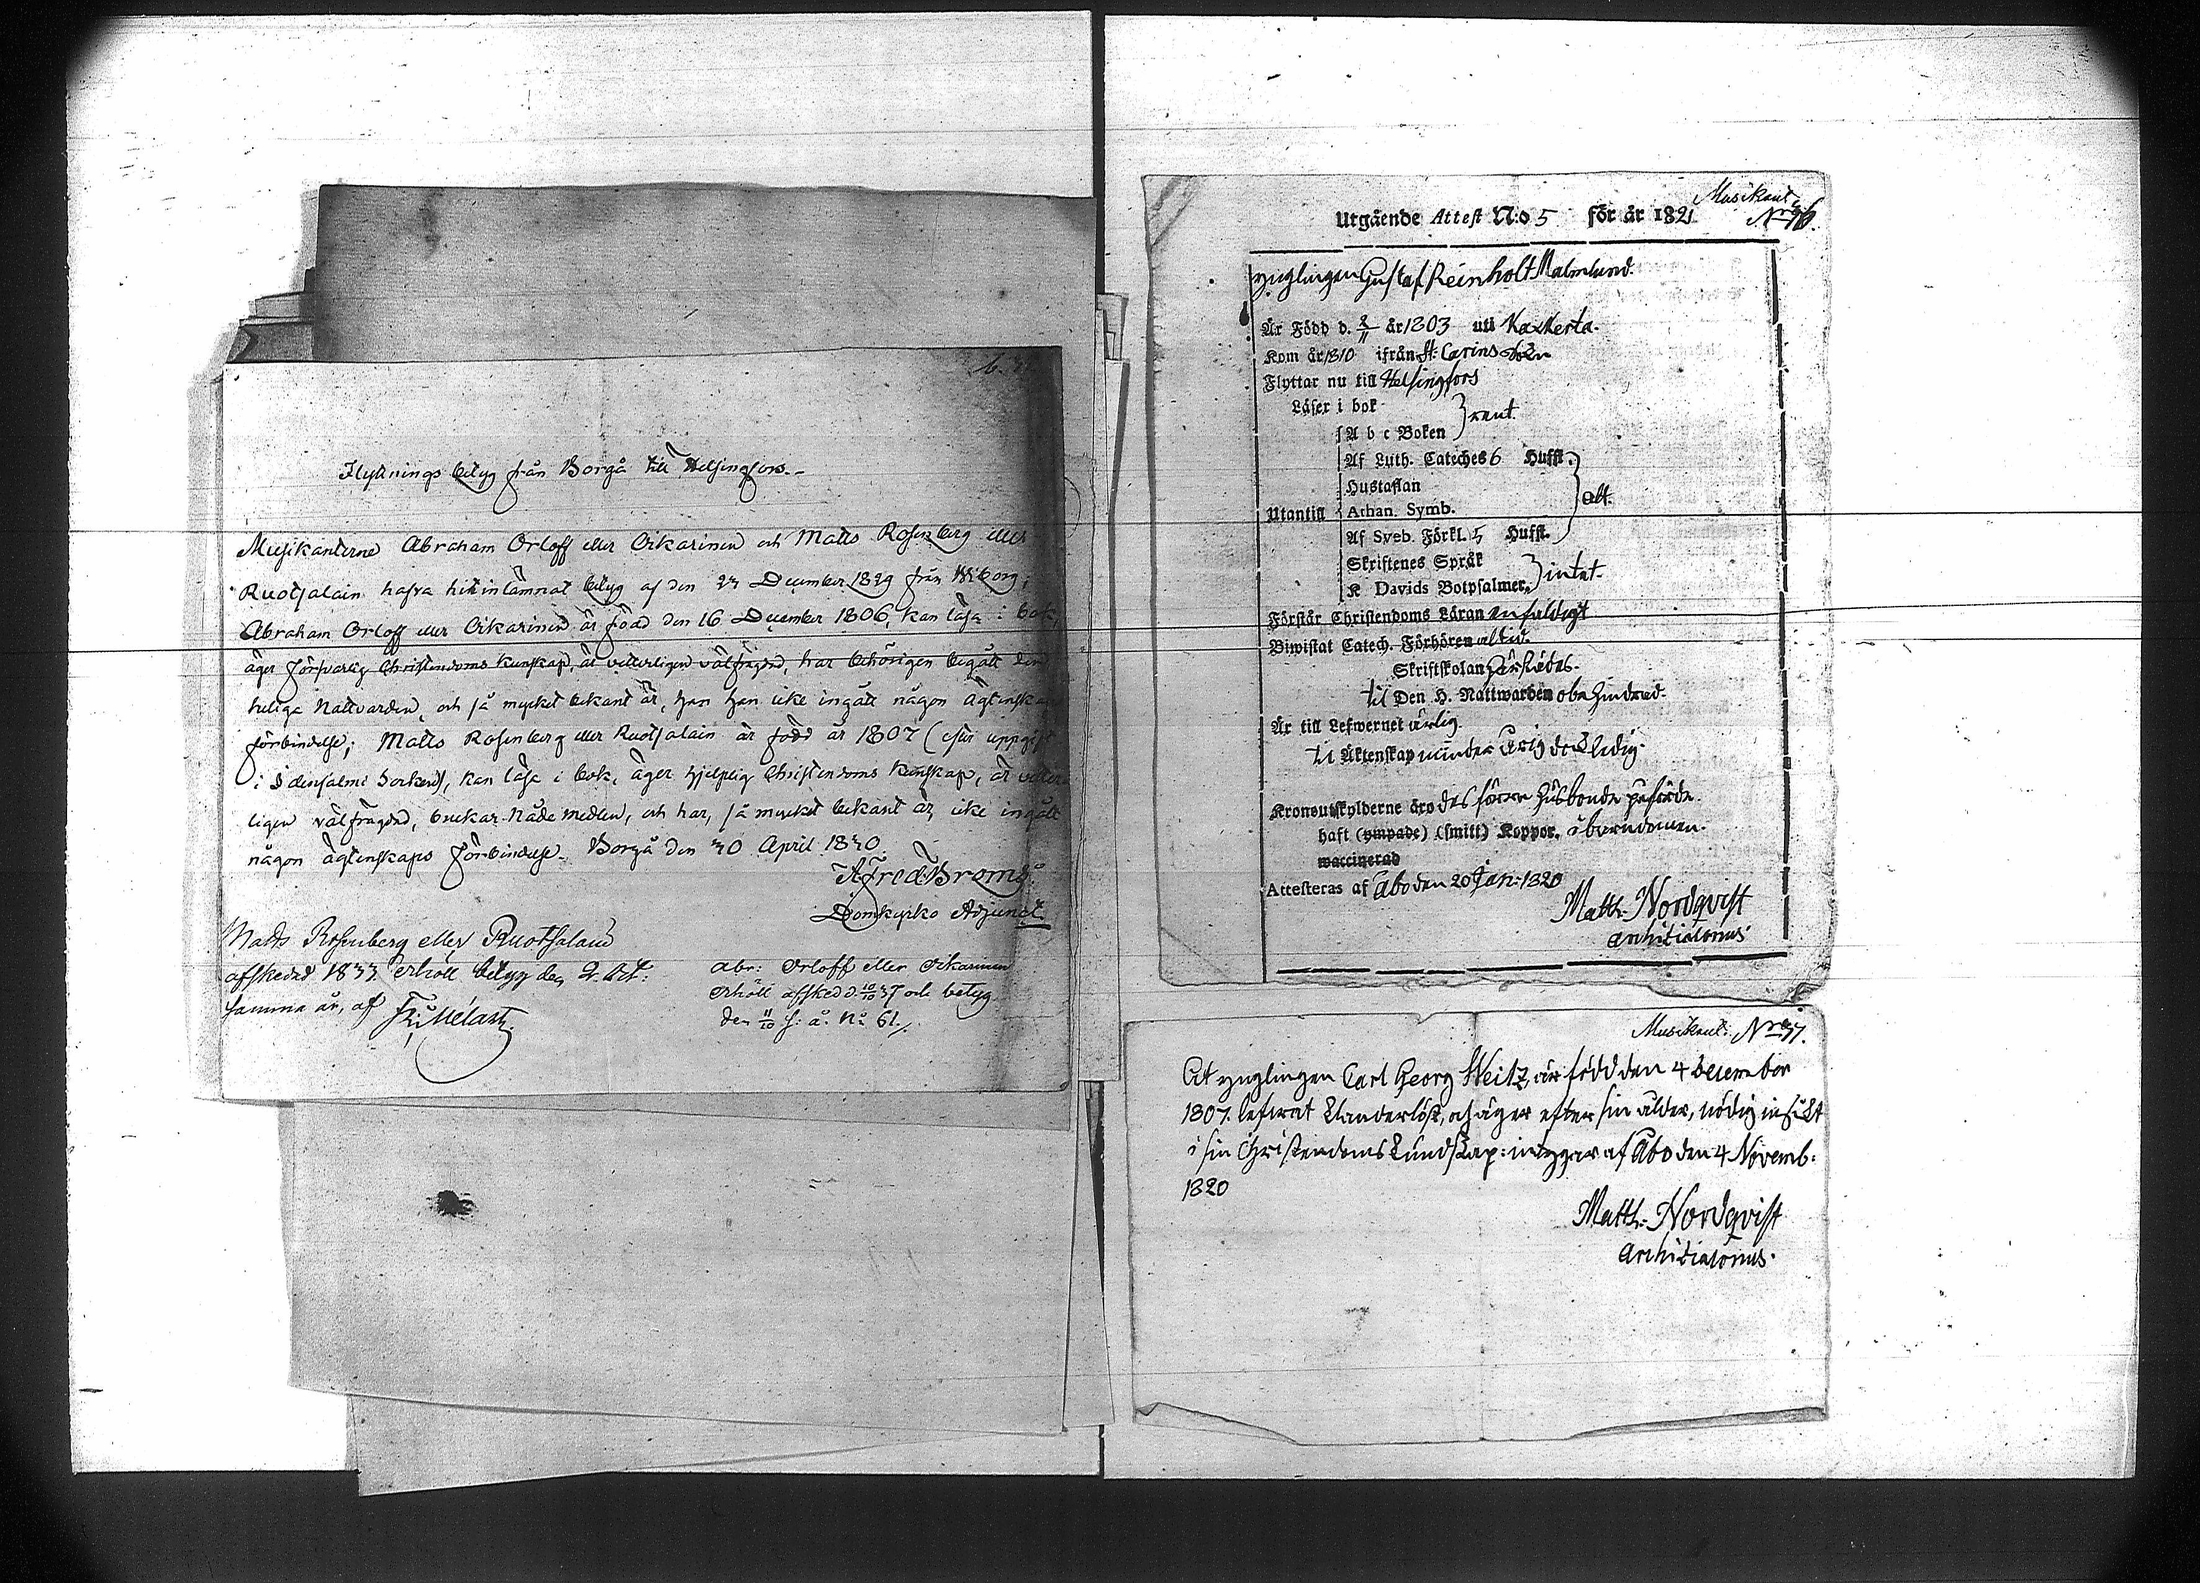 Flyttnings betyg från Borgå till Helsingfors.-
Musikanterne Abraham Orloff eller Oikarinen och Matts Rosenberg eller
Ruotsalain hafva hit inlämnat betyg af den 27 December 1829 från Wiborg;
Abraham Orloff eller Oikarinen är född den 16 December 1806, kan läsa i bok,
äger försvarlig Christendoms kunskap, är vetterligen välfrägdad, har behörigen begått den
heliga Nattvarden, och så mycket bekant är, har han icke ingått någon ägtenskaps
förbindelse; Matts Rosenberg eller Ruotsalain är född år 1807 (efter uppgift
i Idensalmi Socken), kan läsa i bok, äger hjelplig Christendoms kunskap, är vetter-
ligen välfrägdad, brukar Nådemedlen, och har, så mycket bekant är, icke ingått
någon ägtenskaps förbindelse. Borgå den 30 April 1830.
Alfred Broms
Domkyrko Adjunct
Matts Rosenberg eller Ruotsalain
afskedad 1833 erhöll betyg den 2. Oct:
samma år, af
Abr: Orloff eller Oikarinen
erhöll afsked d. 10/10 37 och betyg
den 11/10 s: å. No 61.
Musikant
Nr 76.
Utgående Attest N:o 5 för år 1821
ynglingen Gustaf Reinholt Malmlund.
Är Född d. 2/11 år 1803 uti Kaxkerta.
Kom år 1810 ifrån St: Carins Sokn
Flyttar nu till Helsingfors
Läser i bok } rent.
A b c Boken
Af Luth. Cateches 6 Hufst.
Hustaflan } alt.
Utantill Athan. Symb.
Af Sveb. Förkl. 5 Hufst.
Skriftenes Språk
K Davids Botpsalmer. } intet.
Förstår Christendoms Läran enfaldigt
Biwistat Catech. Förhören altid.
Skriftskolan
til Den H. Nattwarden obehindrad.
Är till Lefwernet ärlig
til Äktenskap minder årig och ledig.
Kronoutskylderne äro des förre Husbonde påförde.
haft (ympade) (smitt) Koppor. i barndomen.
waccinerad
Attesteras af Åbo den 20 Jan: 1820
Matth. Nordqvist
Archidiaconus.
Musikant. Nr 77.
At ynglingen Carl Georg Weitz, är född den 4 December
1807. lefwat klanderlöst, och äger efter sin ålder, nödig insickt
i sin Christendoms kundskap: intygar af Åbo den 4 Novemb:
1820
Matth. Nordqvist
Archidiaconus.